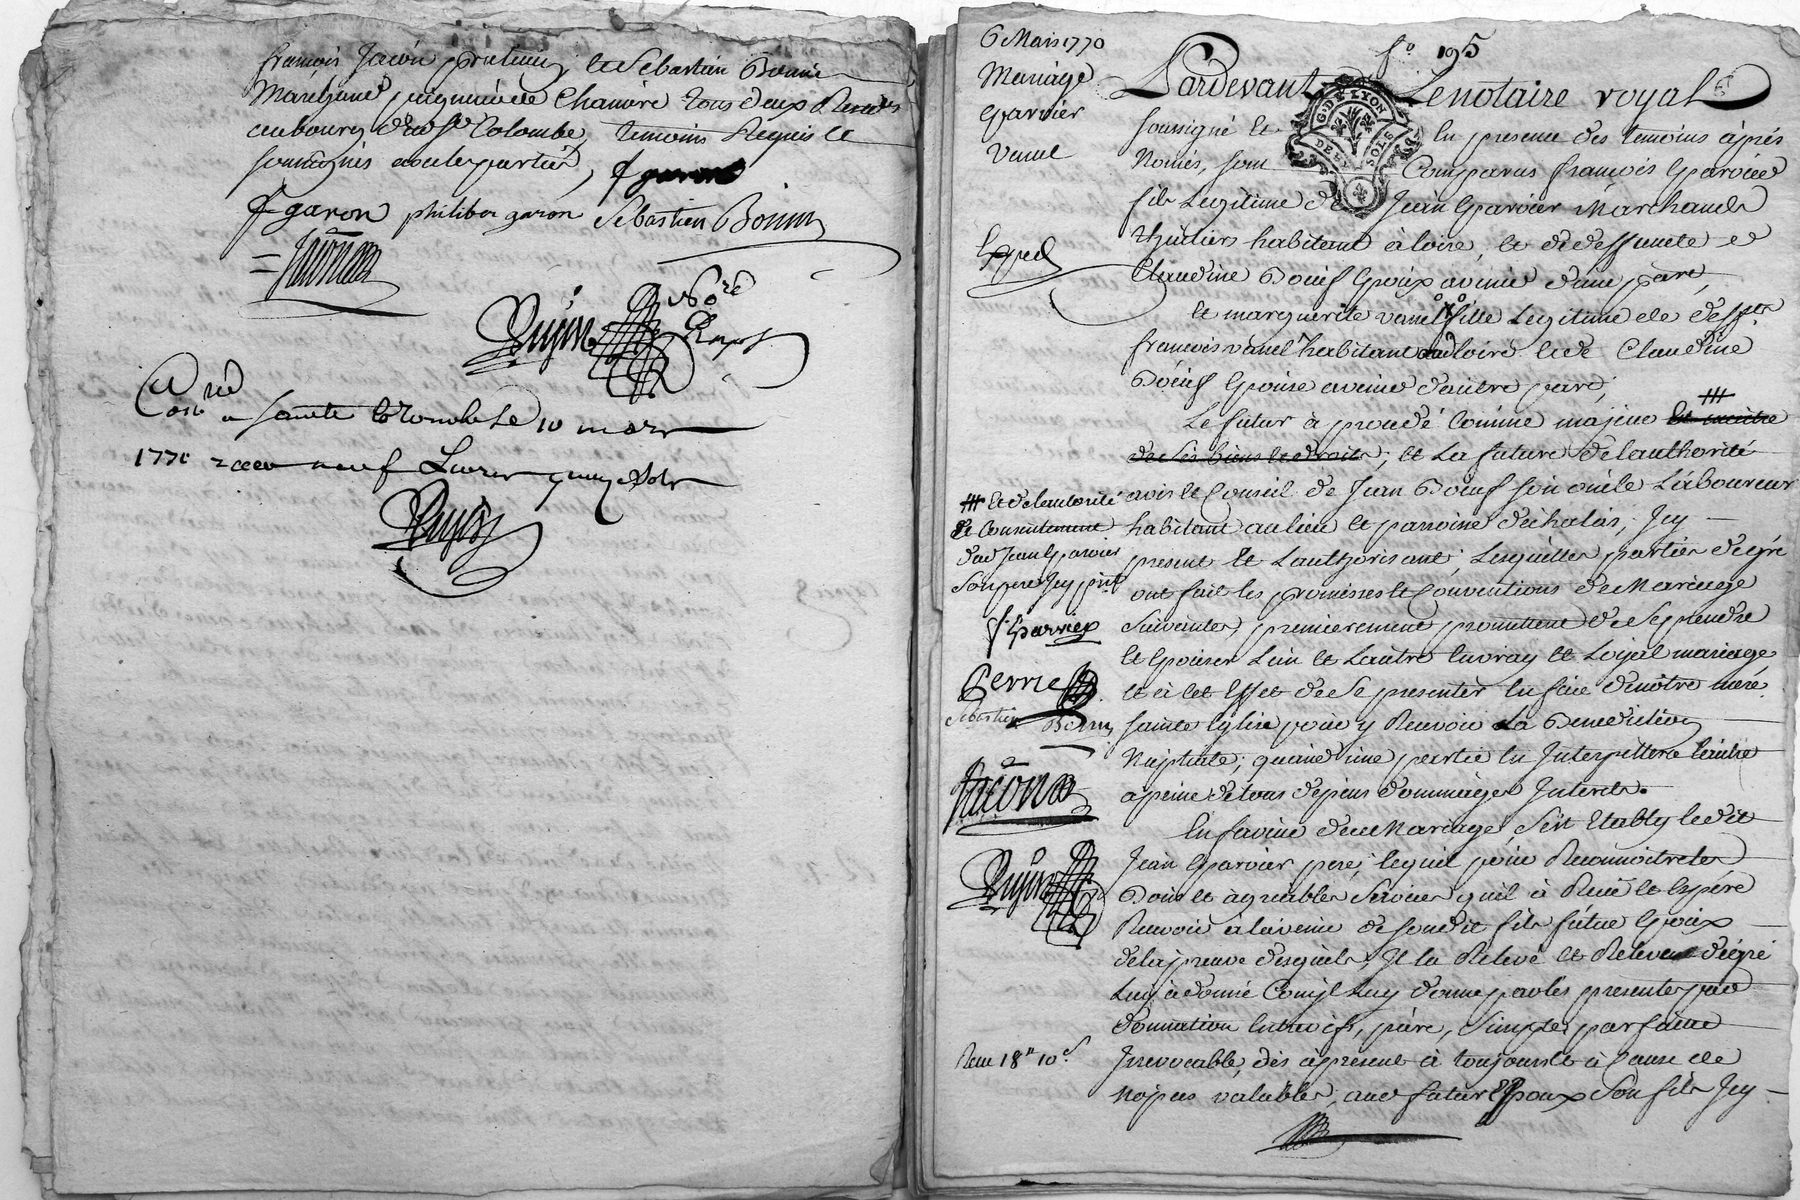 françois Jacon praticien, et Sébastien Bonin
Marchand peigneur de Chanvre tous deux Residts
au bourg dud. Ste Colombe, temoins Requis et
soussignés avec les parties,
f garon philiber garon Sebastien Bonin
Jacon
Dujon Nore
Royal
Conlé a sainte Colombe le 10 mars
1770 recu neuf Livres
Dujon
6 Mars 1770
Mariage
Garnier
Vanel
Exped
fo. 195
Pardevant Le notaire royal
G. DE LYON
DEUX SOLS
soussigné et En presence des temoins àprés
Només, sont Comparus françois Garnier
fils Legitime de Jean Garnier Marchand
thuilier habitant à loire, et de deffuncte
Claudine Boeuf Epoux avenir d'une part,
et marguerite vanel fille Legitime de deffts
francois vanel habitant loire et de Claudine
Boeuf Epouse avenir d'autre part,
Le futur à procedé Comme majeur et maitre
de ses biens et droits, et La future de l'authorité
avis et Conseil de Jean Boeuf son oncle Laboureur
habitant au lieu et parroisse d'échalas, Icy
present et L'authorisant, Lesquelles parties de gré
ont fait les promesses et Conventions de Mariage
Suivantes, premierement promettent de Se prendre
et Epouser L'un et L'autre En vray et Loyal mariage
et à cet Effet de Se presenter En face de nôtre mere
Sainte Eglise pour y Recevoir La Benediction
Nuptiale, quand une partie En Interpellera L'autre
a peine de tous depens dommages Interets.
En faveur de ce Mariage, S'est Etably ledit
Jean Garnier pere, lequel pour Reconnoitre les
Bons et agreables Services qu'il à Receu et Espére
Recevoir à l'avenir de Sondit fils futur Epoux
de la preuve desquels, Il l'a Relevé et Releve de gré
Luy à donné Comme Il Luy donne par les presentes par
donnation Entre vifs, pure, Simple, parfaitte
Irrevocable, dés àpresent à toujours et à Cause de
Nopces valables, aud futur Epoux Son fils Icy
et de l'autorité
et Consentement
dud Jean Garnier
Son pere Icy pnt
f. Garnier
Perrie
Sebastien Bonin
Jacon
Dujon
Recu 18ll 10s.